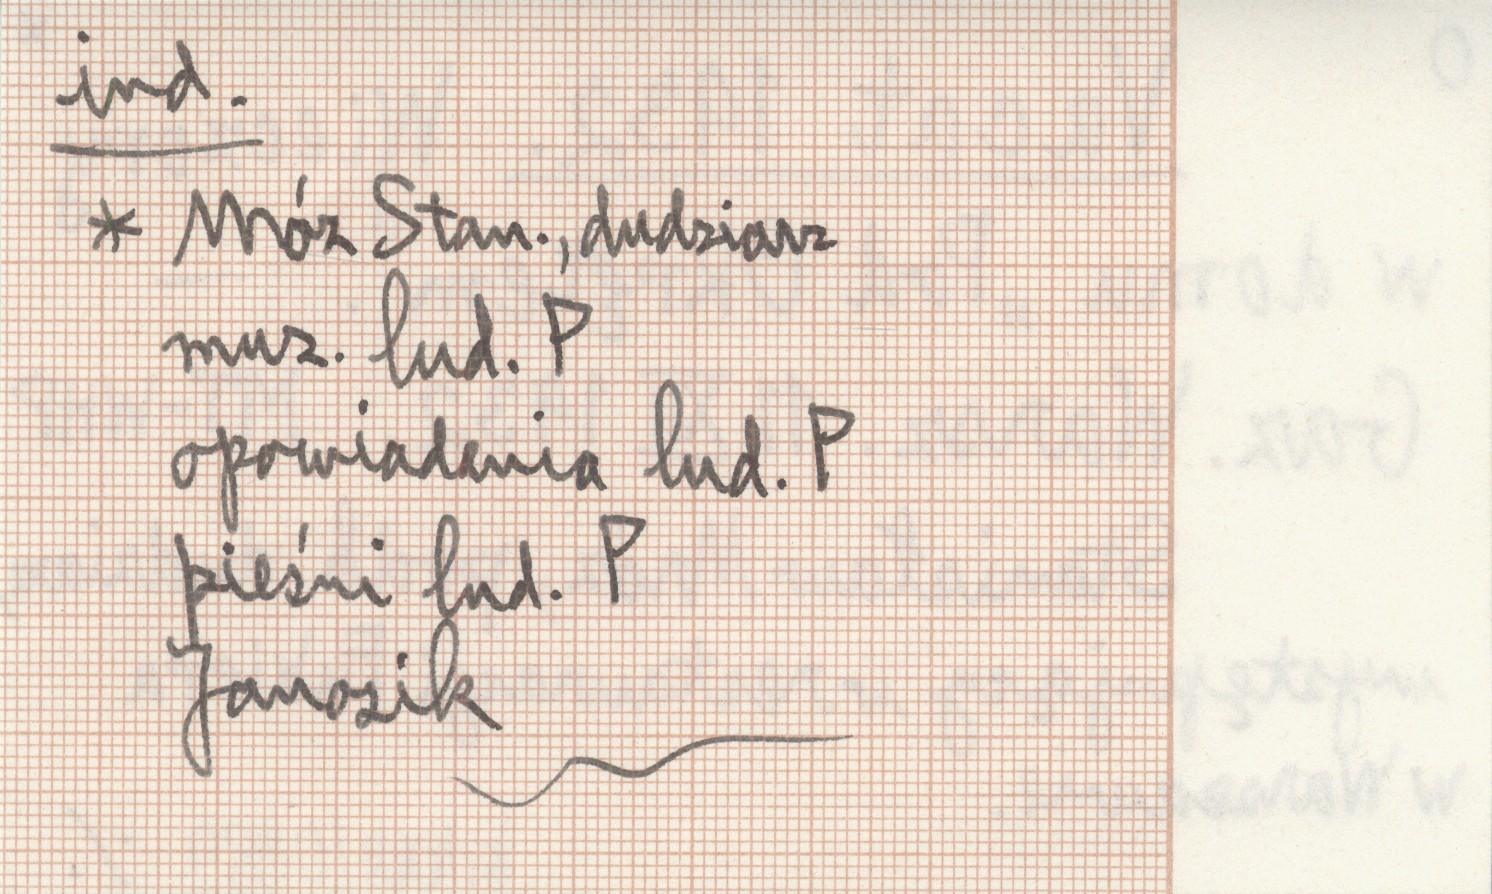 ind.
* Móz Stan., dudziarz
muz. lud. P
opowiadania lud. P
pieśni lud. P
Janosik